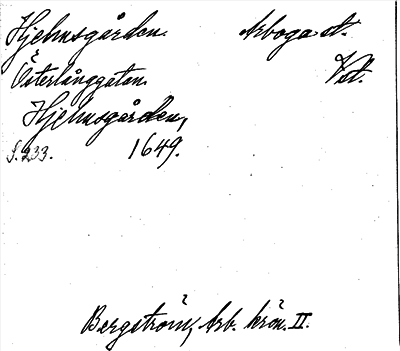 Hjelmsgården. Arboga st.
Österlånggatan. Vstl.
Hjelmsgården,
S. 233. 1649.
Bergström, Arb. krön. II.